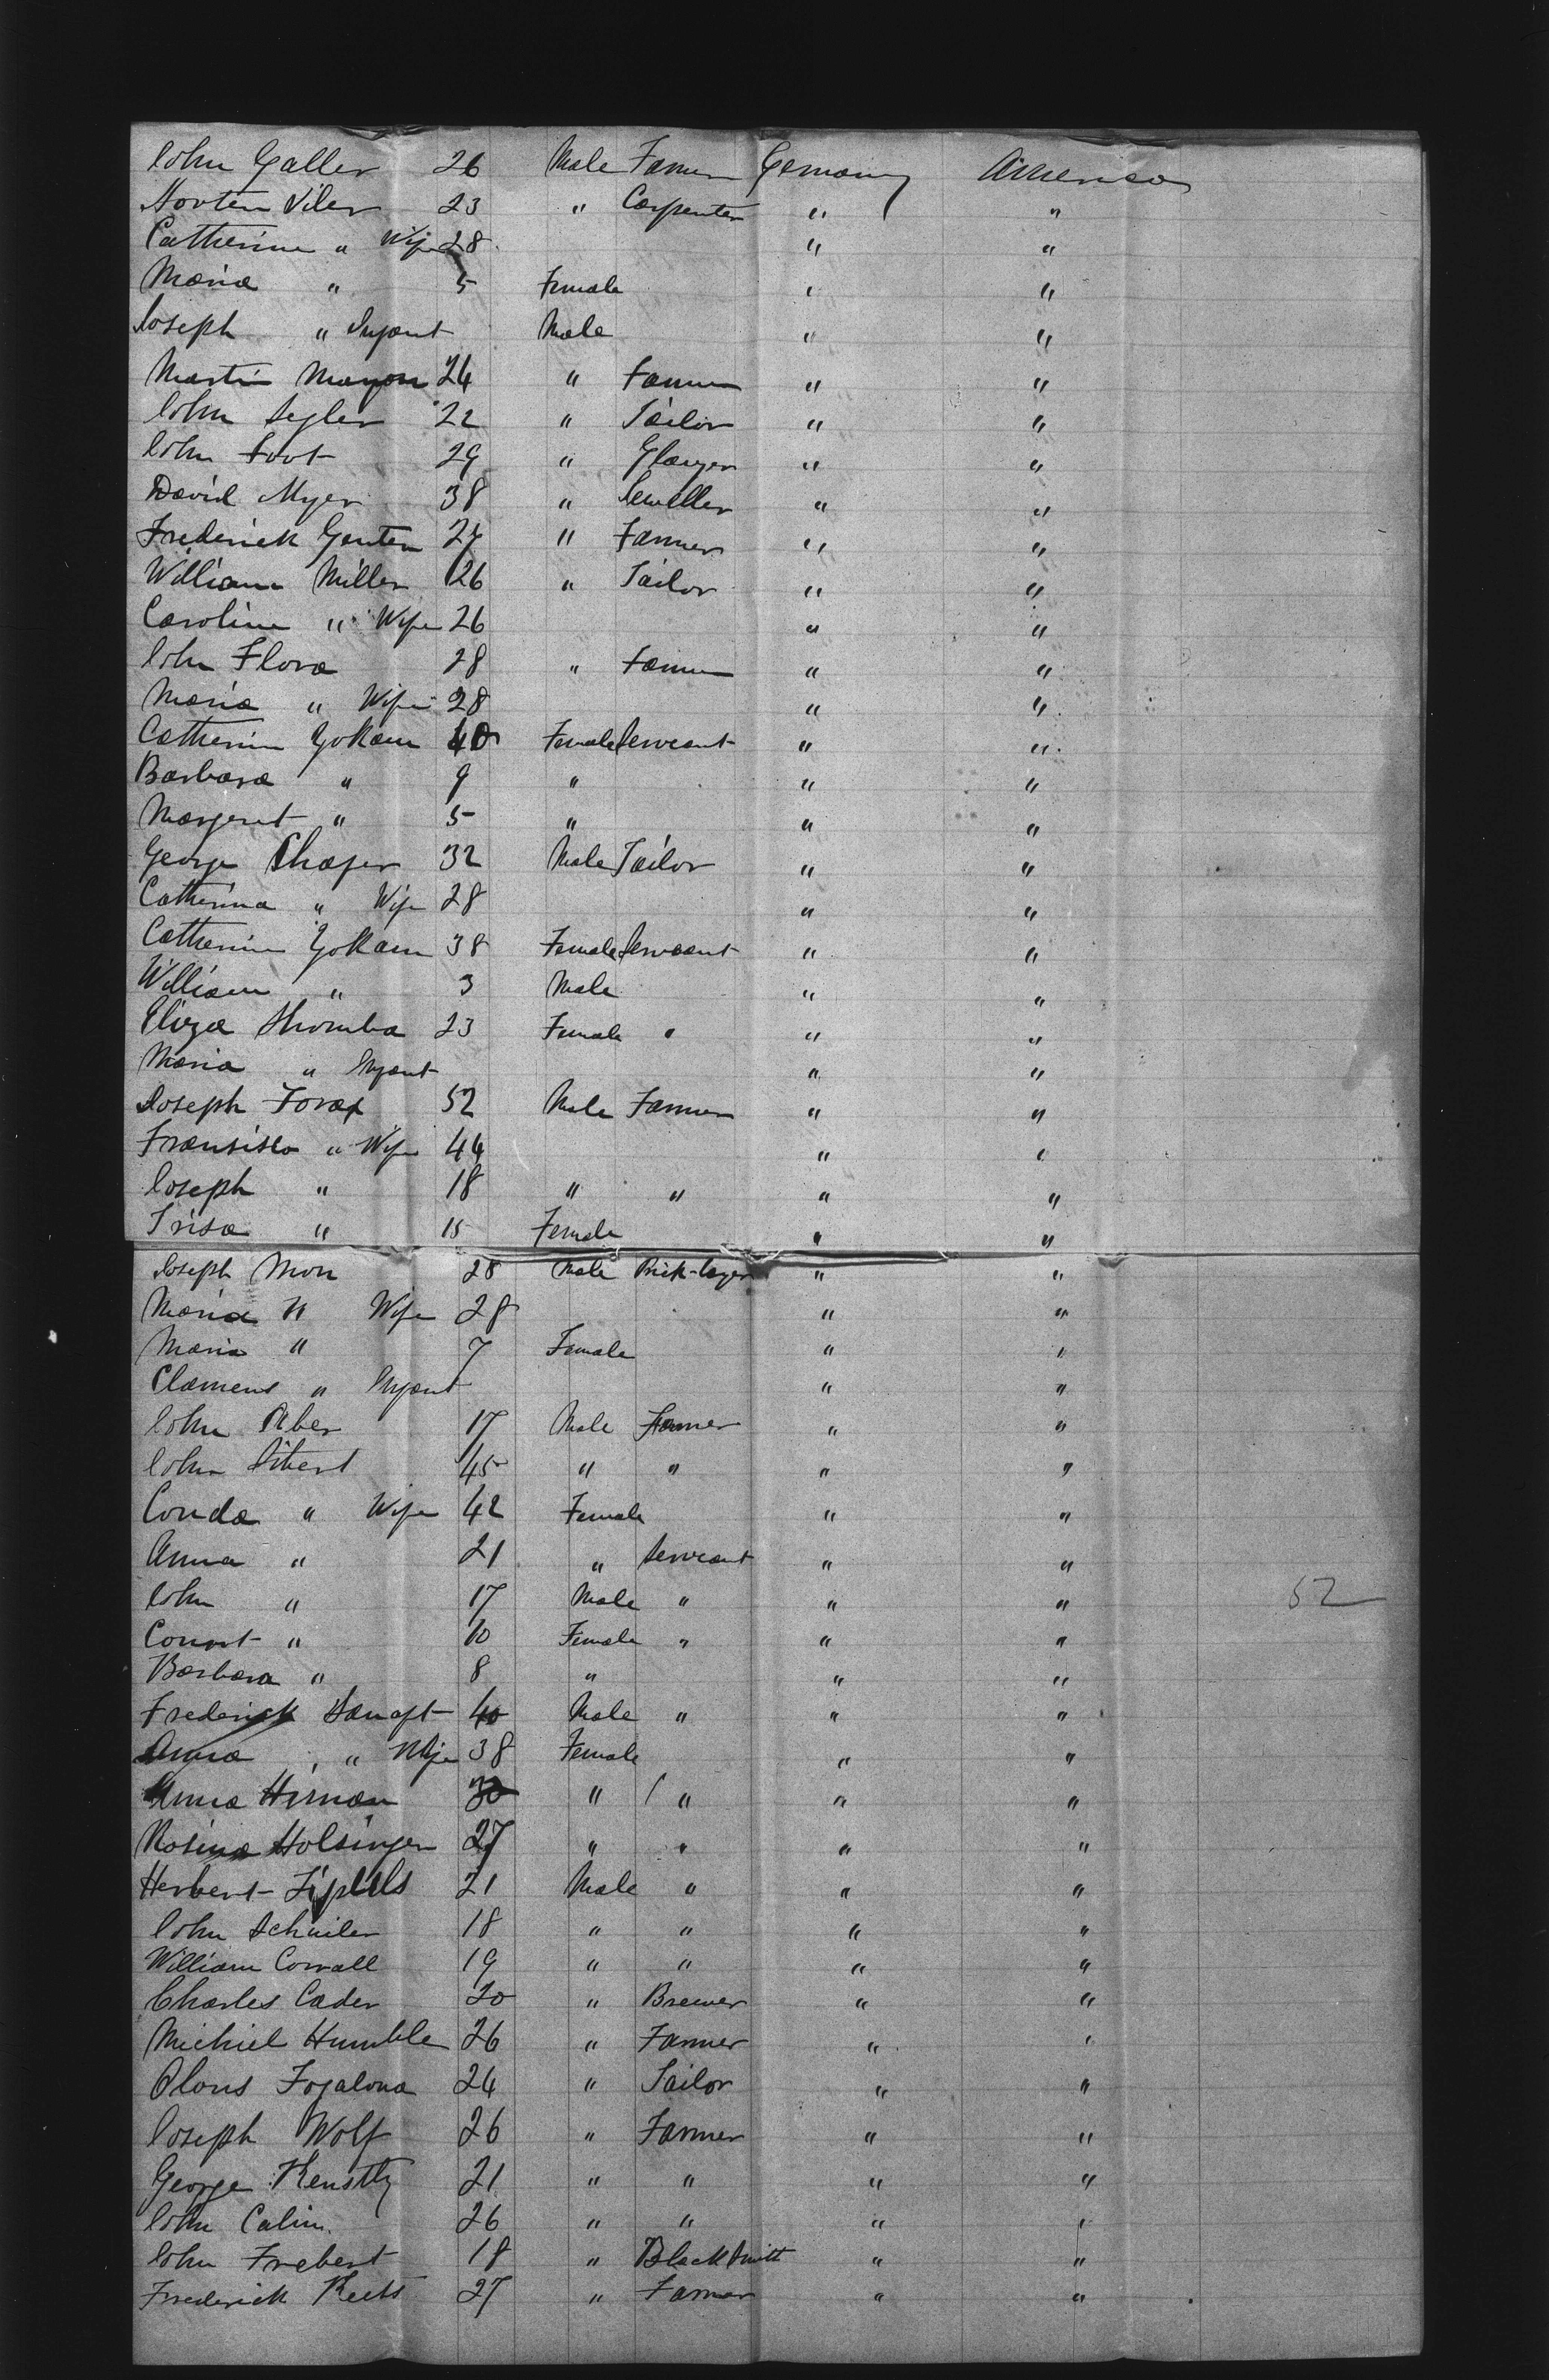 John Galler 26 Male Farmer Germany America
Horten Siler 23 " Carpenter " "
Catherine " Wife 28 " "
Maria " 5 Female " "
Joseph " Infant Male " "
Martin Mayon 24 " Farmer " "
John Segler 22 " Tailor " "
John Foot 29 " Glazyer " "
David Myer 38 " Jeweller " "
Frederick Genten 27 " Farmer " "
William Miller 26 " Tailor " "
Caroline " Wife 26 " "
John Flora 28 " Farmer " "
Maria " Wife 28 " "
Catherin Yokam 40 Female Servant " "
Barbara " 9 " " "
Margeret " 5 " " "
George Shafer 32 Male Tailor " "
Catherina " Wife 28 " "
Catherin Yokam 38 Female Servant " "
William " 3 Male " "
Eliza Shromba 23 Female " " "
Maria " Infant " "
Joseph Forax 52 Male Farmer " "
Fransisco " Wife 44 " "
Joseph " 18 " " " "
Trisa " 15 Female " "
Joseph Mon 28 Male Brick-layer " "
Maria " Wife 28 " "
Maria " 7 Female " "
Clamens " Infant " "
John Aber 17 Male Farmer " "
John Sibert 45 " " " "
Conda " Wife 42 Female " "
Anna " 21 " Servant " "
John " 17 Male " " "
52
Conrat " 10 Female " " "
Barbara " 8 " " "
Frederick Sanaft 40 Male " " "
Anna " Wife 38 Female " "
Anna Hirman 30 " " " "
Rosina Holsinger 27 " " " "
Herbert 21 Male " " "
John Schuiler 18 " " " "
William Corrall 19 " " " "
Charles Cader 20 " Brewer " "
Michiel Humble 26 " Farmer " "
Olous Fogalona 24 " Tailor " "
Joseph Wolf 26 " Farmer " "
George 21 " " " "
John Calim 26 " " " "
John Frebert 18 " BlackSmith " "
Frederick Reets 27 " Farmer " "